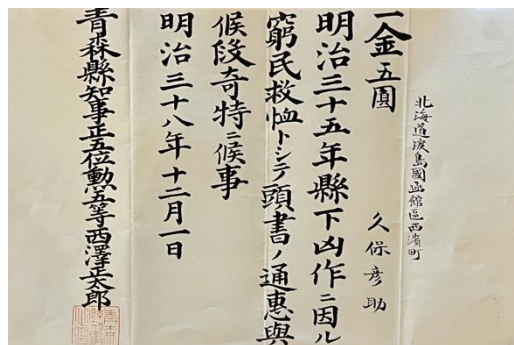 北海道渡島國函館區西濱町
久保彦助
一金五圓
明治三十五年縣下凶作ニ因ル
窮民救恤トシテ頭書ノ通惠與
候段奇特ニ候事
明治三十八年十二月一日
青森縣知事正五位勳五等西澤正太郎